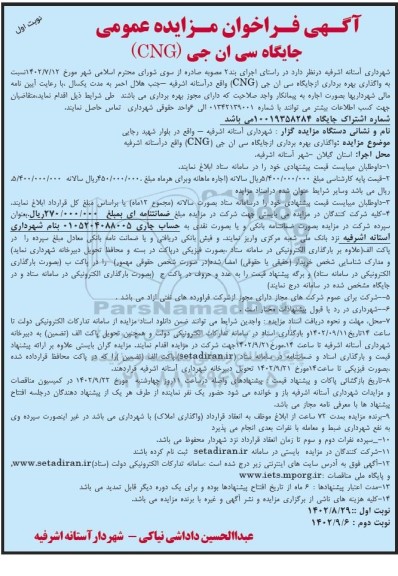 نوبت اول
آگهی فراخوان مزایده عمومی
جایگاه سی ان جی (CNG)
شهرداری آستانه اشرفیه درنظر دارد در راستای اجرای بند۲ مصوبه صادره از سوی شورای محترم اسلامی شهر مورخ ۱۴۰۲/۷/۱۲نسبت
به واگذاری بهره برداری ازجایگاه سی ان جی (CNG) واقع درآستانه اشرفیه –جنب هلال احمر به مدت یکسال ،با رعایت آیین نامه
مالی شهرداریها بصورت اجاره به پیمانکار واجد صلاحیت که دارای مجوز بهره برداری می باشند طی شرایط ذیل اقدام نماید،متقاضیان
جهت کسب اطلاعات بیشتر می توانند با شماره ۰۱۳۴۲۱۳۹۰۰۱ الی ۴واحد حقوقی شهرداری تماس حاصل نمایند.
شماره اشتراک جایگاه ۱۰۰۱۹۳۵۸۲۸۴می باشد
نام و نشانی دستگاه مزایده گزار : شهرداری آستانه اشرفیه – واقع در بلوار شهید رجایی
موضوع مزایده :واگذاری بهره برداری ازجایگاه سی ان جی (CNG) واقع درآستانه اشرفیه
محل اجرا: استان گیلان –شهر آستانه اشرفیه.
۱–داوطلبان میبایست قیمت پیشنهادی خود را در سامانه ستاد ابلاغ نمایند.
۲–قیمت پایه کارشناسی مبلغ ۵/۴۰۰/۰۰۰/۰۰۰ریال سالانه (اجاره ماهانه وبرای هرماه مبلغ ۴۵۰/۰۰۰/۰۰۰ریال سالانه ۵/۴۰۰/۰۰۰/۰۰۰
ریال می باشد وسایر شرایط عنوان شده دراسناد مزایده
۳–داوطلبان میبایست قیمت پیشنهادی خود را درسامانه ستاد بصورت سالانه (مجموع ۱۲ماه) یا براساس مبلغ کل قرارداد ابلاغ نمایند.
۴–کلیه شرکت کنندگان در مزایده می بایستی جهت شرکت در مزایده مبلغ ضمانتنامه ای بمبلغ ۲۷۰/۰۰۰/۰۰۰ریال،بعنوان
سپرده شرکت در مزایده بصورت ضمانتنامه بانکی و یا بصورت نقدی به حساب جاری ۰۱۰۵۲۰۴۰۸۸۰۰۵ بنام شهرداری
آستانه اشرفیه نزد بانک ملی شعبه مرکزی واریز نمایند. و فیش بانکی دریافتی و یا ضمانت نامه بانکی معادل مبلغ سپرده را در
پاکت الف(علاوه بر بارگذاری الکترونیکی در سامانه ستاد بصورت فیزیکی درپاکت در بسته و محافظ تحویل دبیرخانه شهرداری نماید)
و مدارک شناسایی شخص خریدار (حقیقی یا حقوقی) امضا شده(در صورت شخص حقوقی ممهور) را در پاکت ب (بصورت بارگذاری
الکترونیکی در سامانه ستاد) و برگه پیشنهاد قیمت را به عدد و حروف در پاکت ج (بصورت بارگذاری الکترونیکی در سامانه ستاد و در
جایگاه مشخص شده در سامانه درج نمایند)
۵–شرکت برای عموم شرکت های مجاز دارای مجوز ازشرکت فراورده های نفتی آزاد می باشد .
۶–شهرداری در رد یا قبول پیشنهادات مختار است .
۷–محل، مهلت و نحوه دریافت اسناد مزایده: واجدین شرایط می توانند ضمن دانلود اسناد؛مزایده از سامانه تدارکات الکترونیکی دولت تا
ساعت ۱۴تاریخ ۱۴۰۲/۰۹/۱۱و بارگذاری؛اسناد در سامانه تدارکات الکترونیکی دولت و همچنین تحویل پاکت الف (تضمین) به دبیرخانه
شهرداری آستانه اشرفیه تا ساعت ۱۴مورخ ۱۴۰۲/۹/۲۱جهت شرکت در مزایده اقدام نمایند. مزایده گران بایستی علاوه بر ارائه پیشنهاد
قیمت و بارگذاری اسناد و ضمانتنامه در سامانه ستاد (setadiran.ir)پاکت الف (تضمین) را که در پاکت محافظ قرارداده شده
،بصورت فیزیکی تا ساعت۱۴مورخ ۱۴۰۲/۹/۲۱ تحویل دبیرخانه شهرداری آستانه اشرفیه قراردهند.
۸–تاریخ بازگشائی پاکات و پیشنهاد قیمت: پیشنهادهای واصله درساعت ۱۰روز چهارشنبه مورخ ۱۴۰۲/۹/۲۲ در کمیسیون مناقصات
و مزایدات شهرداری آستانه اشرفیه باز و خوانده می شود حضور یک نفر نماینده از طرف هر یک از پیشنهاد دهندگان درجلسه افتتاح
پیشنهاد ها با معرفی نامه مجاز می باشد.
۹–برنده مزایده بمدت ۷۲ ساعت از ابلاغ موظف به انعقاد قرارداد (واگذاری املاک) با شهرداری می باشد در غیر اینصورت سپرده وی
به نفع شهرداری ضبط و معامله با نفرات بعدی انجام می پذیرد
۱۰–سپرده نفرات دوم و سوم تا زمان انعقاد قرارداد نزد شهردار محفوظ می باشد.
۱۱–شرکت کنندگان در مزایده بایستی در سامانه setadiran.ir ثبت نام کرده باشند
۱۲–آگهی فوق به آدرس سایت های اینترنتی زیر درج شده است :سامانه تدارکات الکترونیکی دولت (ستاد)www.setadiran.ir,
و پایگاه ملی مناقصات :www.iets.mporg.ir
۱۳–مدت اعتبار پیشنهادها : ۶ ماه از تاریخ افتتاح پیشنهادها بوده و برای یک دوره دیگر قابل تمدید می باشد
۱۴–کلیه هزینه های ناشی از برگزاری مزایده و نشر آگهی و غیره با برنده مزایده می باشد.
نوبت اول ::۱۴۰۲/۸/۲۹
نوبت دوم : ۱۴۰۲/۹/۶
عبدالحسین داداشی نیاکی – شهردارآستانه اشرفیه